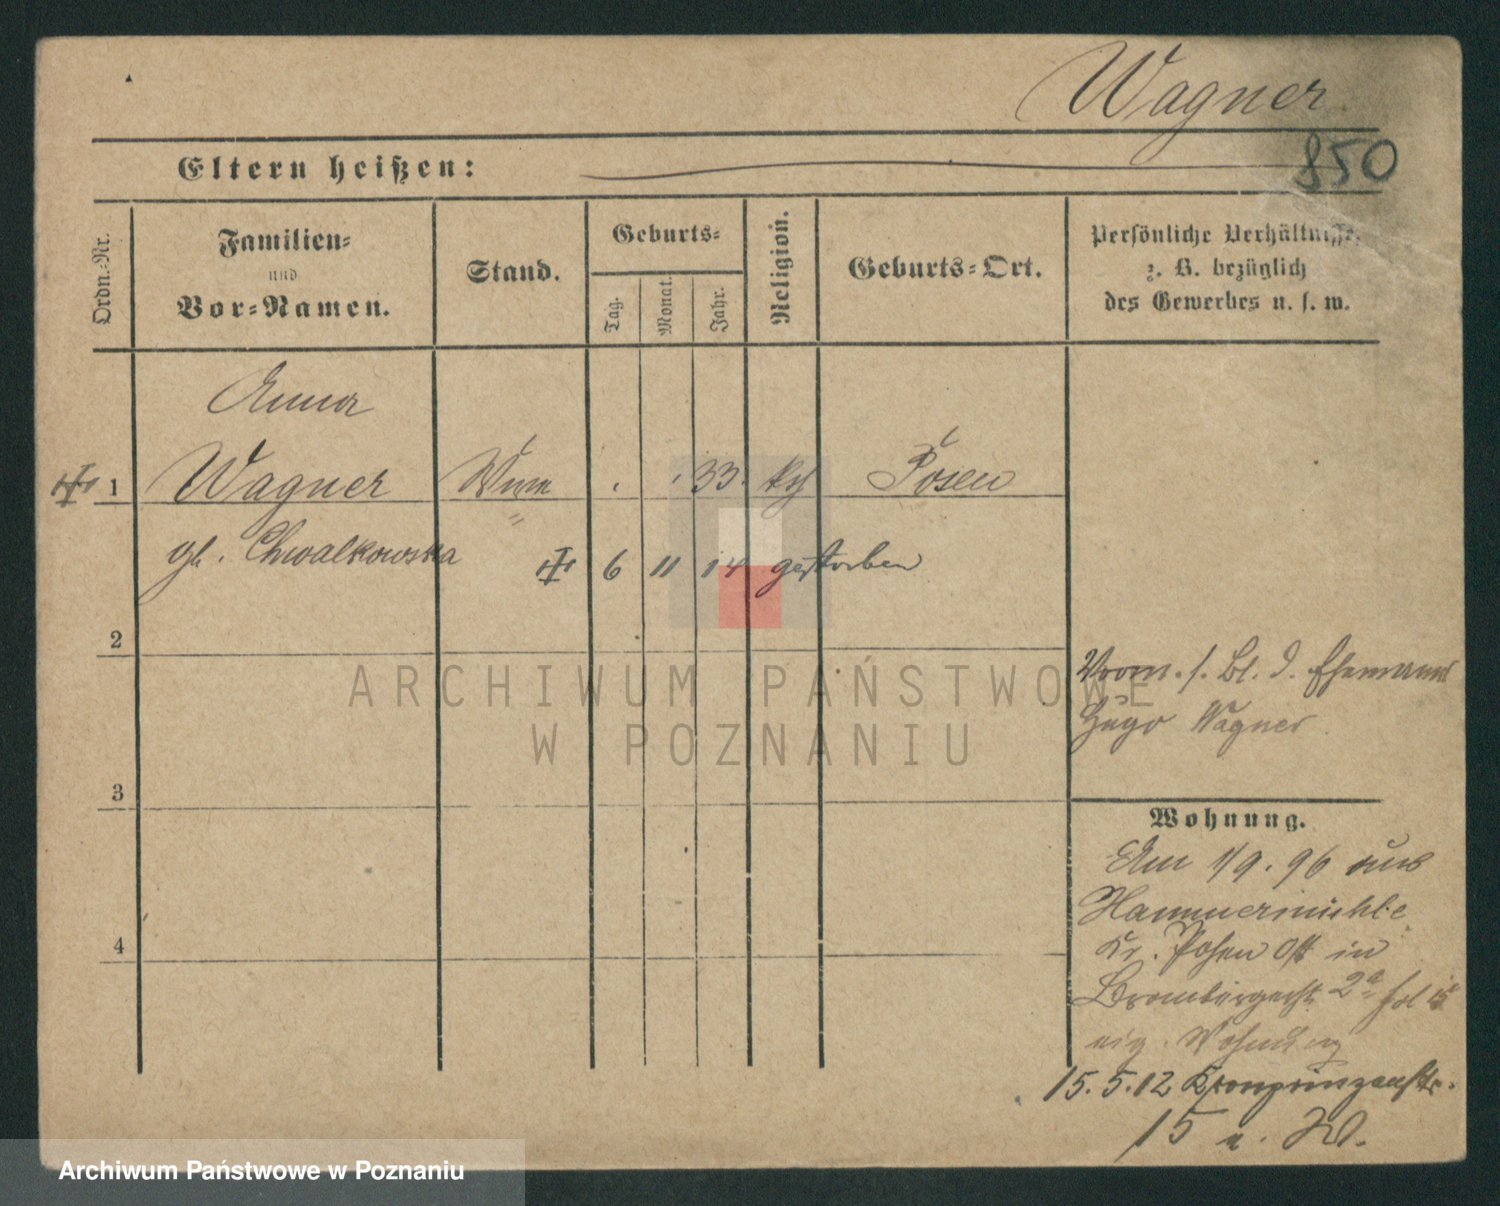 Wagner
850
Eltern heißen:
Ordn.-Nr.
Familien-
und
Vor-Namen.
Stand.
Geburts-
Tag.
Monat.
Jahr.
Religion.
Geburts-Ort.
Persönliche Verhältnisse,
z. B. bezüglich
des Gewerbes u. s. w.
Anna
1 Wagner 33. Posen
Chwalkowska
6 11 14 gestorben
2
Bl. d. Ehemanns
Hugo Wagner
3
Wohnung.
Am 1/9. 96 aus
Hammermühle
Kr. Posen Ost in
4
2a
eig. Wohnung
15. 5. 12 Kronprinzenstr.
15 e. W.
ARCHIWUM PAŃSTWOWE
W POZNANIU
Archiwum Państwowe w Poznaniu